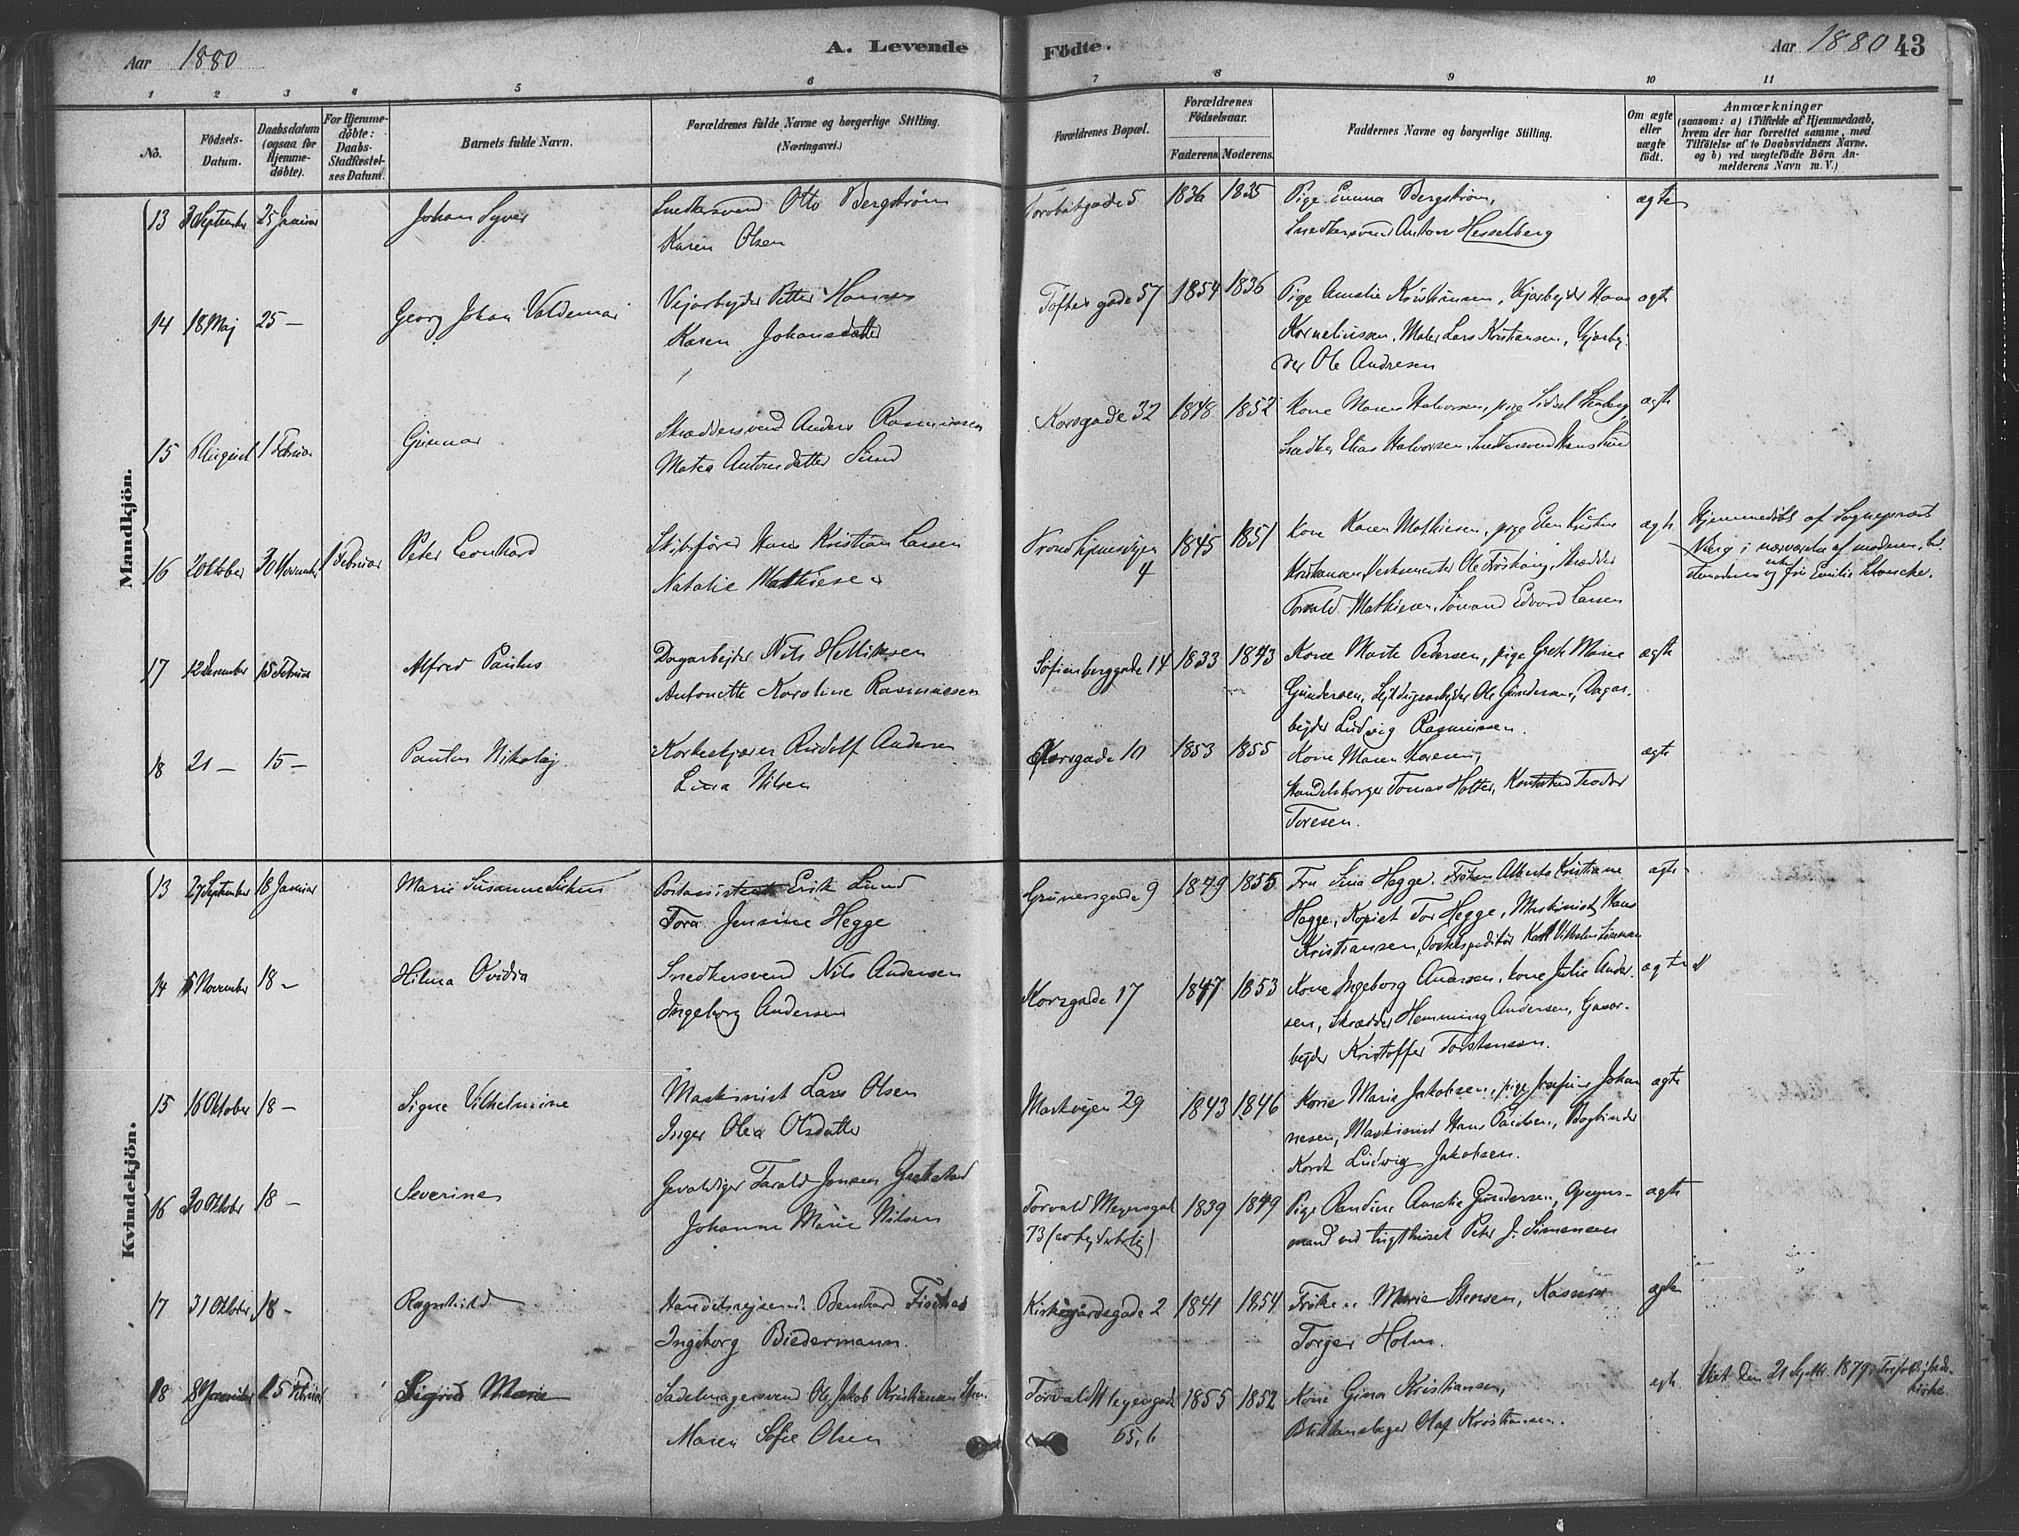 Aar 1880 A. Levende Födte. Aar 1880 43
1 2 3 4 5 6 7 8 9 10 11
No.
Födsels-Datum.
Daabsdatum (ogsaa for Hjemme-döbte).
For Hjemme-döbte: Daabs-Stadfæstel-ses Datum.
Barnets fulde Navn.
Forældrenes fulde Navne og borgerlige Stilling.
(Næringsvei.)
Forældrenes Bopæl.
Forældrenes Födselsaar.
Faderens. Moderens.
Faddernes Navne og borgerlige Stilling.
Om ægte eller uægte födt.
Anmærkninger
(saasom: a) i Tilfælde af Hjemmedaab,
hvem der har forrettet samme, med
Tilföielse af to Daabsvidners Navne.
og b) ved uægtefödte Börn An-
melderens Navn m. V.)
Mandkjön.
13 September 25 Januar Johan Syver Snedkersvend Otto Bergstrøm 5 1836 1835 Pige Emma Bergstrøm, ægte
Karen Olsen Snedkersvend Anton Hesselberg
14 18 Maj 25 — Georg Johan Valdemar Vejarbejder Petter Hansen Toftes gade 57 1854 1836 Pige Amalie Kristiansen, Vejarbejder Hans ægte
Karen Johansdatter Korneliussen, Maler Lars Kristiansen, Vejarbej-
der Ole Andresen
15 August 1 Februar Gunnar Skræddersvend Anders Rasmussen Korsgade 32 1848 1852 Kone Maren Halvorsen, pige ægte
Matea Antonsdatter Sund Snedker Elias Halvorsen, Snedkersvend Hans Sund
16 2 Oktober 30 November 1 Februar Peter Leonhard Skibsfører Hans Kristian Larsen Trondhjemsvejen 1845 1851 Kone Karen Mathiesen, pige Ellen Kristine ægte Hjemmedøbt af Sogneprest
Natalie Mathiesen 4 Kristiansen, Ole Skrædder i nærværelse af moderen,
Torvald Mathiesen, Sømand Edvard Larsen og frk Emilie
17 12 December 15 Februar Alfred Paulus Dagarbejder Nils Helliksen Sofienberggade 14 1833 1843 Kone Marte Pedersen, pige Grete Marie ægte
Antonette Karoline Rasmussen Gundersen, Ole Gundersen, Dagar-
bejder Ludvig Rasmussen.
18 21 — 15 — Paulus Nikolaj Korkeskjærer Rudolf Andersen Korsgade 10 1853 1855 Kone Maren ægte
Lina Nilsen Handelsborger Tomas Holter, Teodor
Toresen.
Kvindekjön.
13 27 September 18 Januar Marie Susanne Erik Lund Grünersgade 9 1849 1855 Fru Hegge, Frøken Alberta Kristiane ægte
Tora Jensine Hegge Hegge, Kopist Tor Hegge, Maskinist Hans
Kristiansen, Postekspeditør Karl Vilhelm
14 5 November 18 — Hilma Ovidia Snedkersvend Nils Andersen Korsgade 17 1847 1853 Kone Ingeborg Andersen, kone Julie Ander- ægte
Ingeborg Andersen sen, Skrædder Hemming Andersen, Gasar-
bejder Kristoffer Torstensen.
15 16 Oktober 18 — Signe Vilhelmine Maskinist Lars Olsen Markvejen 29 1843 1846 Kone Marie Jakobsen, pige Johan ægte
Inger Olea Olsdatter nesen, Maskinist Hans Paulsen, Bogbinder
Ludvig Jakobsen.
16 30 Oktober 18 — Severine Gevaldiger Tarald Jonsen Torvald Meyersgade 1839 1849 Pige Pauline Amalie Gundersen, Opsyns- ægte
Johanne Marie Nilsen 73 (arbejdsbolig) mand ved tugthuset Peter J. Simensen
17 31 Oktober 18 — Ragnhild Handelsrejsende Bernhard Fischer Kirkegårdsgade 2 1841 1854 Frøken Marie Stensen, Kasserer ægte
Ingeborg Biedermann. Torger Holm.
18 8 November 15 Februar Sigrid Marie Sadelmagersvend Ole Jakob Kristiansen Torvald Meyersgade 1855 1852 Kone Gina Kristiansen, ægte Viet den 21 Septbr 1879
Maren Sofie Olsen 65, b Blikkenslager Olaf Kristiansen. kirke